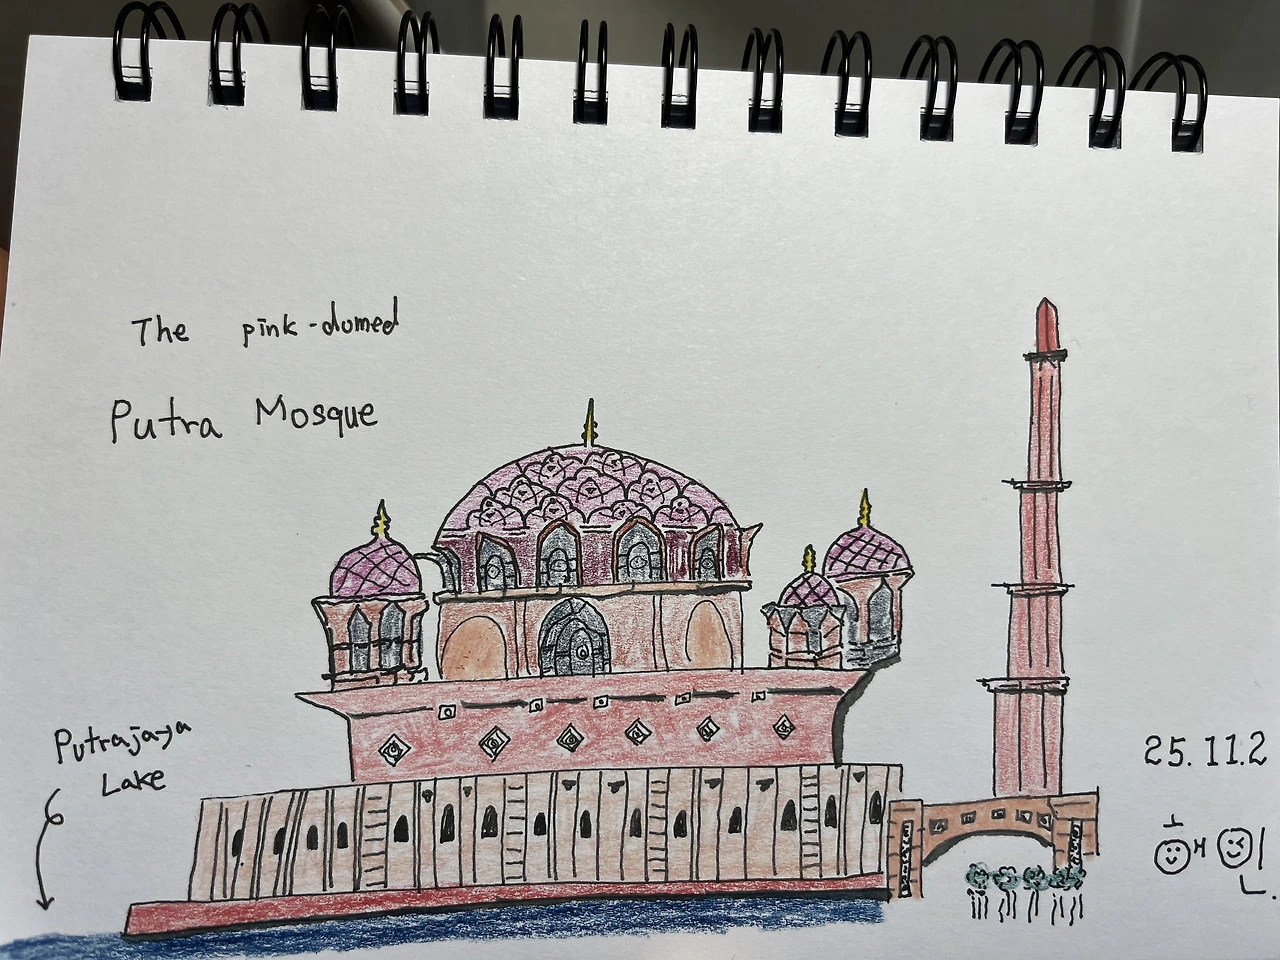 The pink-domed
Putra Mosque
Putrajaya
Lake
25.11.2
해인.